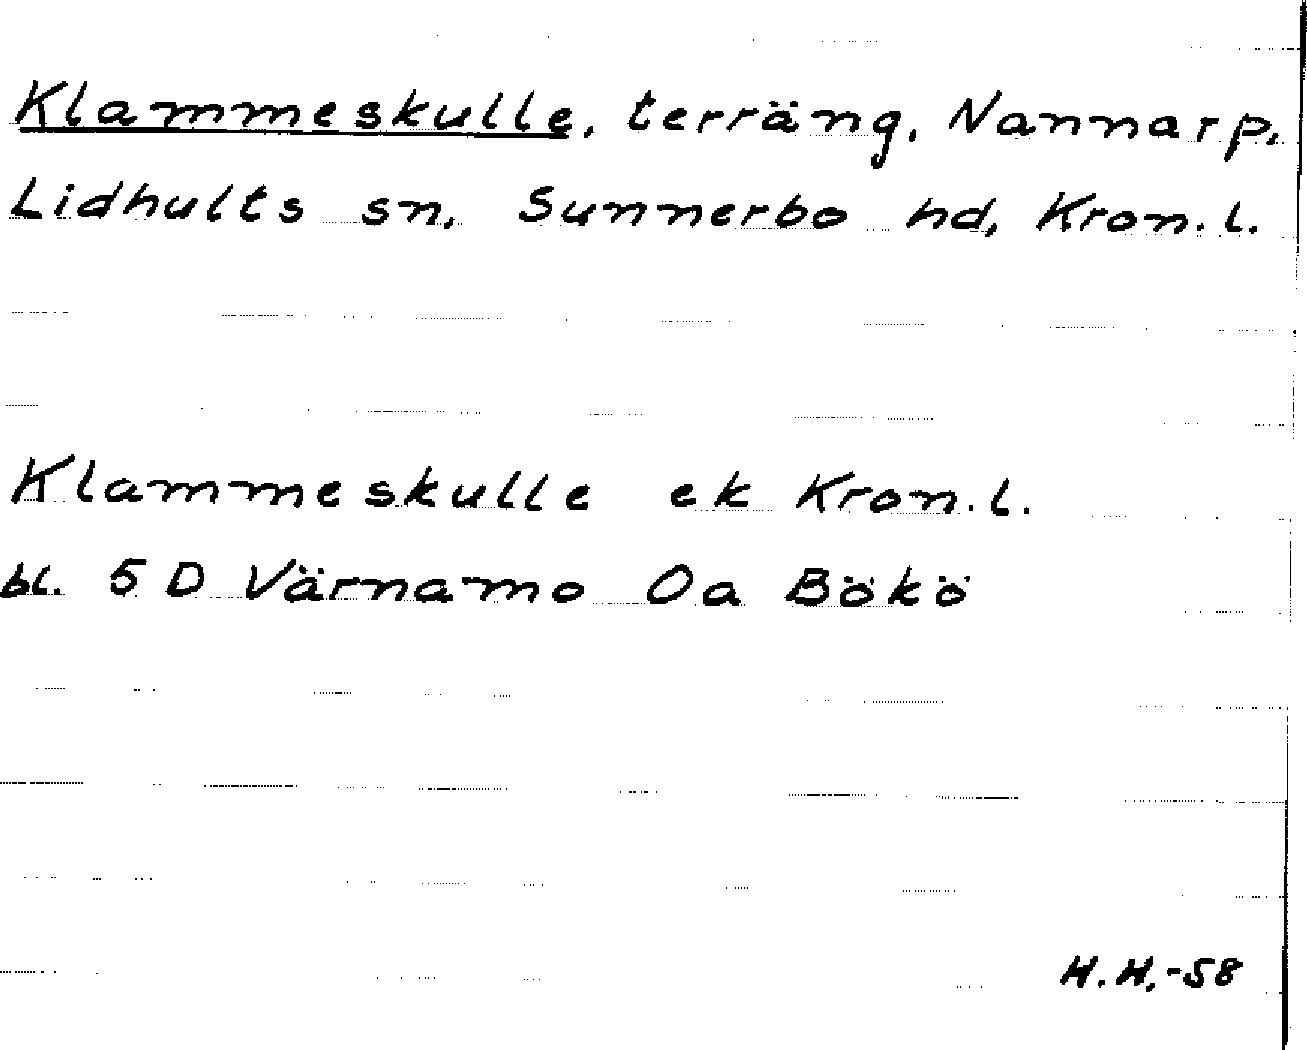 Klammeskulle, terräng, Nannarp,
Lidhults sn, Sunnerbo hd, Kron.l.
Klammeskulle ek Kron.l.
bl. 5 D Värnamo Oa Bökö
H.H.-58